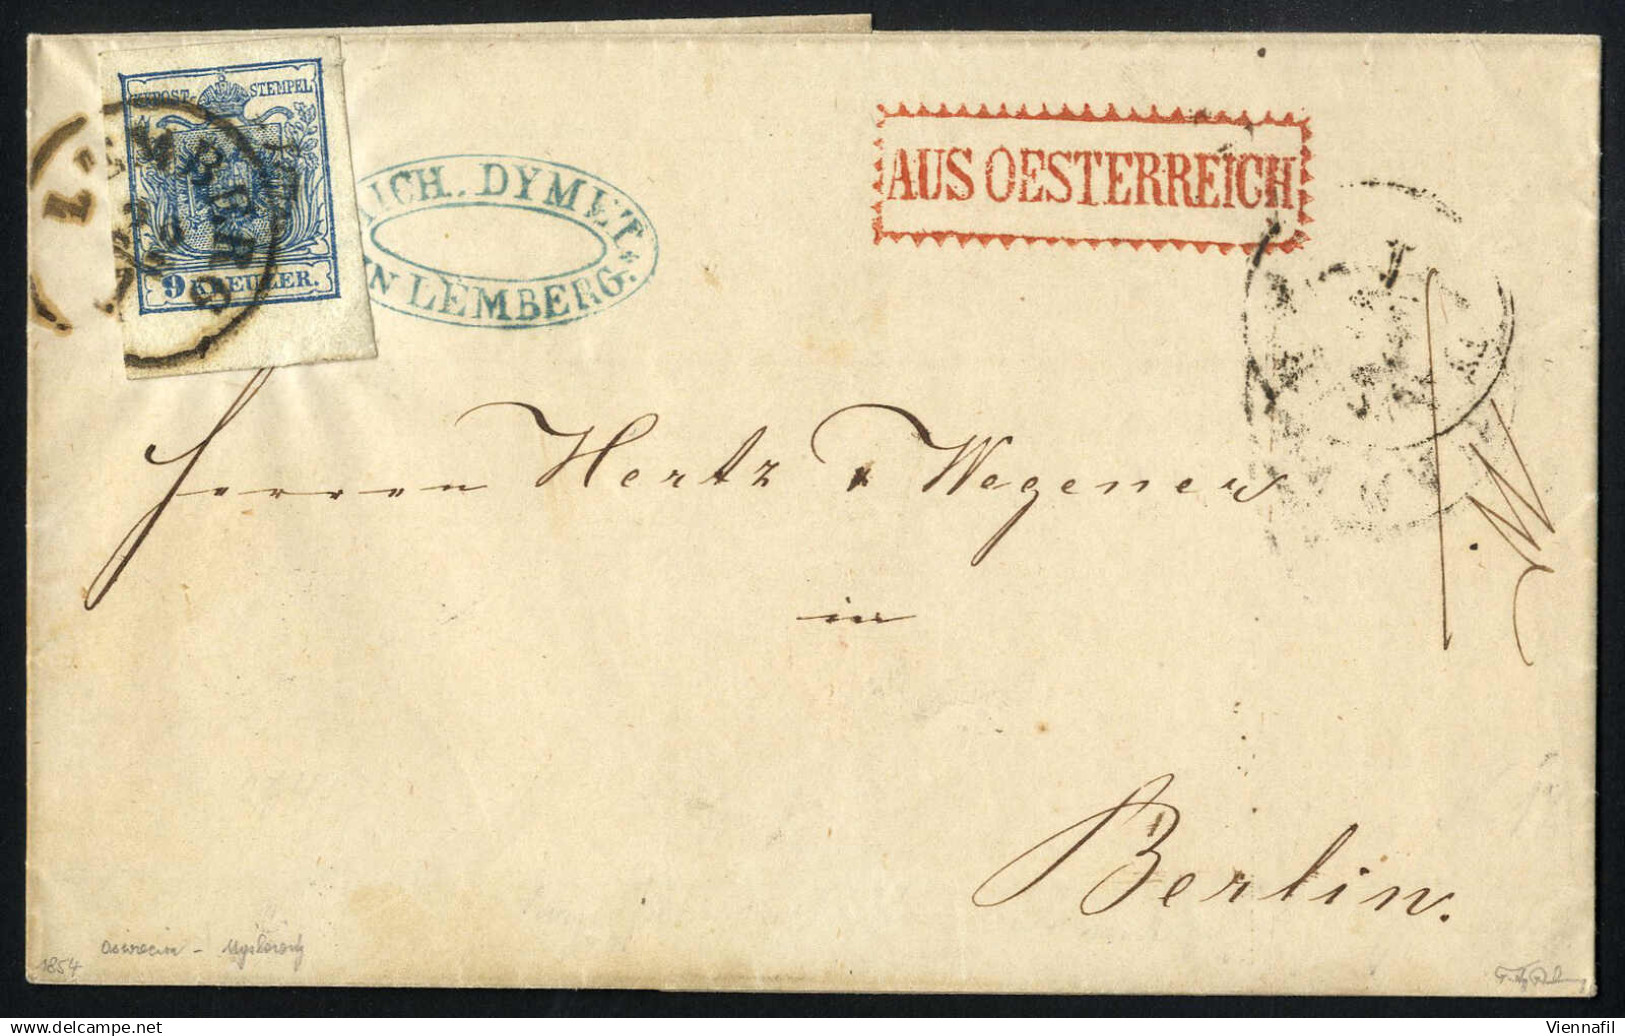 KKPOST-STEMPEL
9 KREUZER.
LEMBERG
MICH. DYMET
IN LEMBERG.
AUS OESTERREICH
Herren Hertz & Wegener
in
Berlin.
1854
Oswiecim - Myslowitz
Viennafil